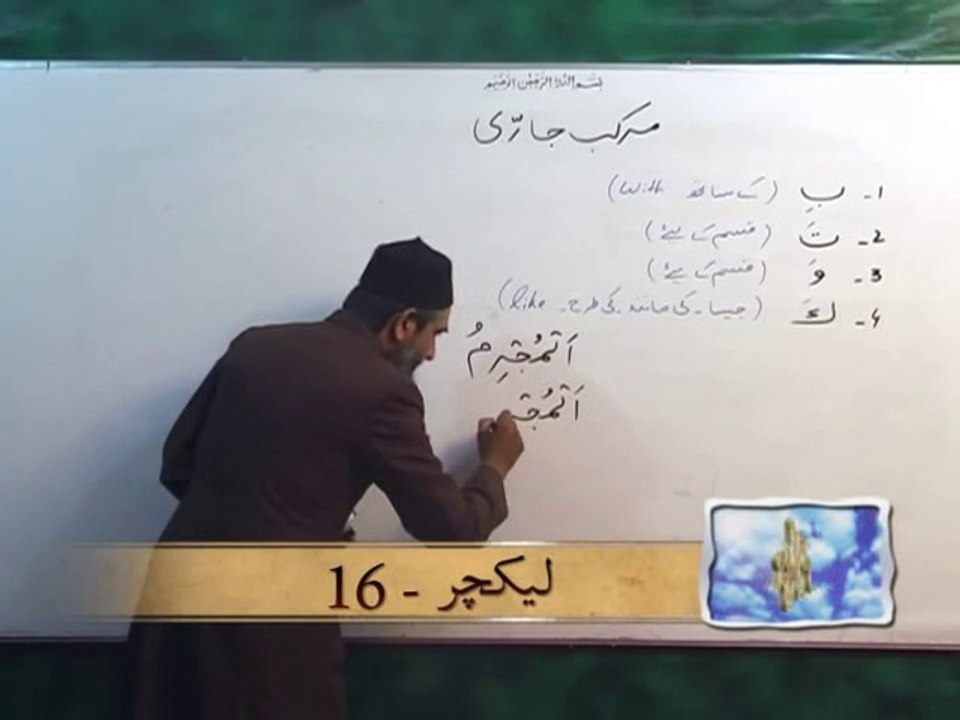 بسم اللہ الرحمن الرحیم
مرکب جارّی
1۔ بِ (کے ساتھ With)
2۔ تَ (قسم کے لئے)
3۔ وَ (قسم کے لئے)
4۔ كَ (جیسا۔ کی مانند۔ کی طرح۔ like)
لیکچر - 16